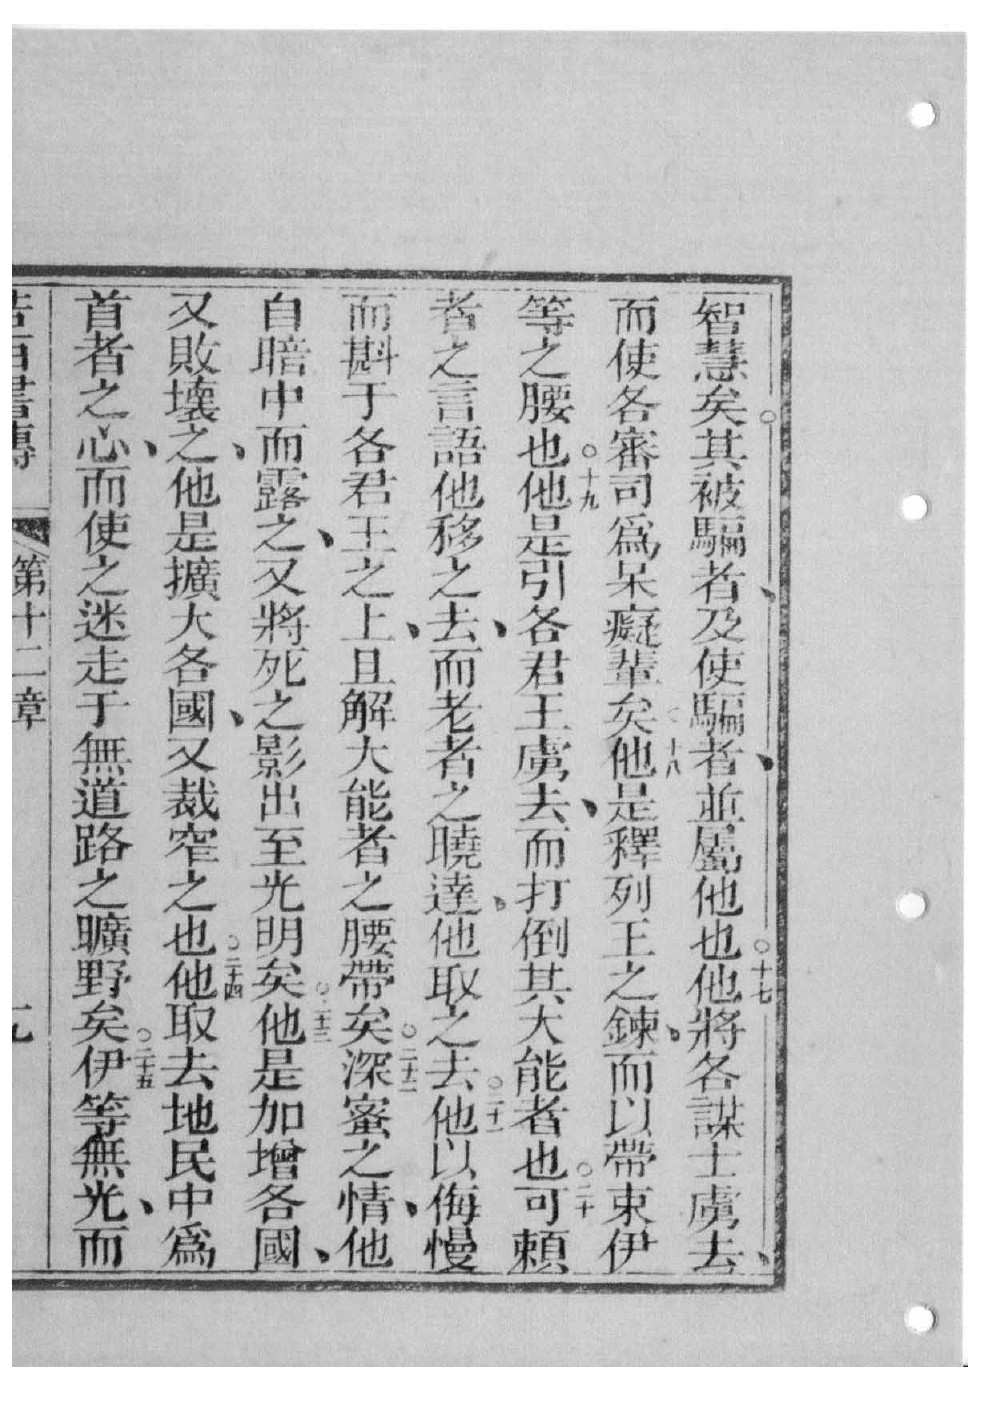 智慧矣○其被騙者、及使騙者、並屬他也○十七他將各謀士虜去、
而使各審司爲呆癡輩矣○十八他是釋列王之鍊、而以帶束伊
等之腰也○十九他是引各君王虜去、而打倒其大能者也○二十可賴
者之言語他移之去、而老者之曉達、他取之去○二十一他以侮慢
而斟于各君王之上、且解大能者之腰帶矣○二十二深蜜之情、他
自暗中而露之、又將死之影出至光明矣○二十三他是加增各國、
又敗壞之、他是擴大各國、又裁窄之也○二十四他取去地民中爲
首者之心、而使之迷走于無道路之曠野矣○二十五伊等無光、而
書傳 第十二章 九